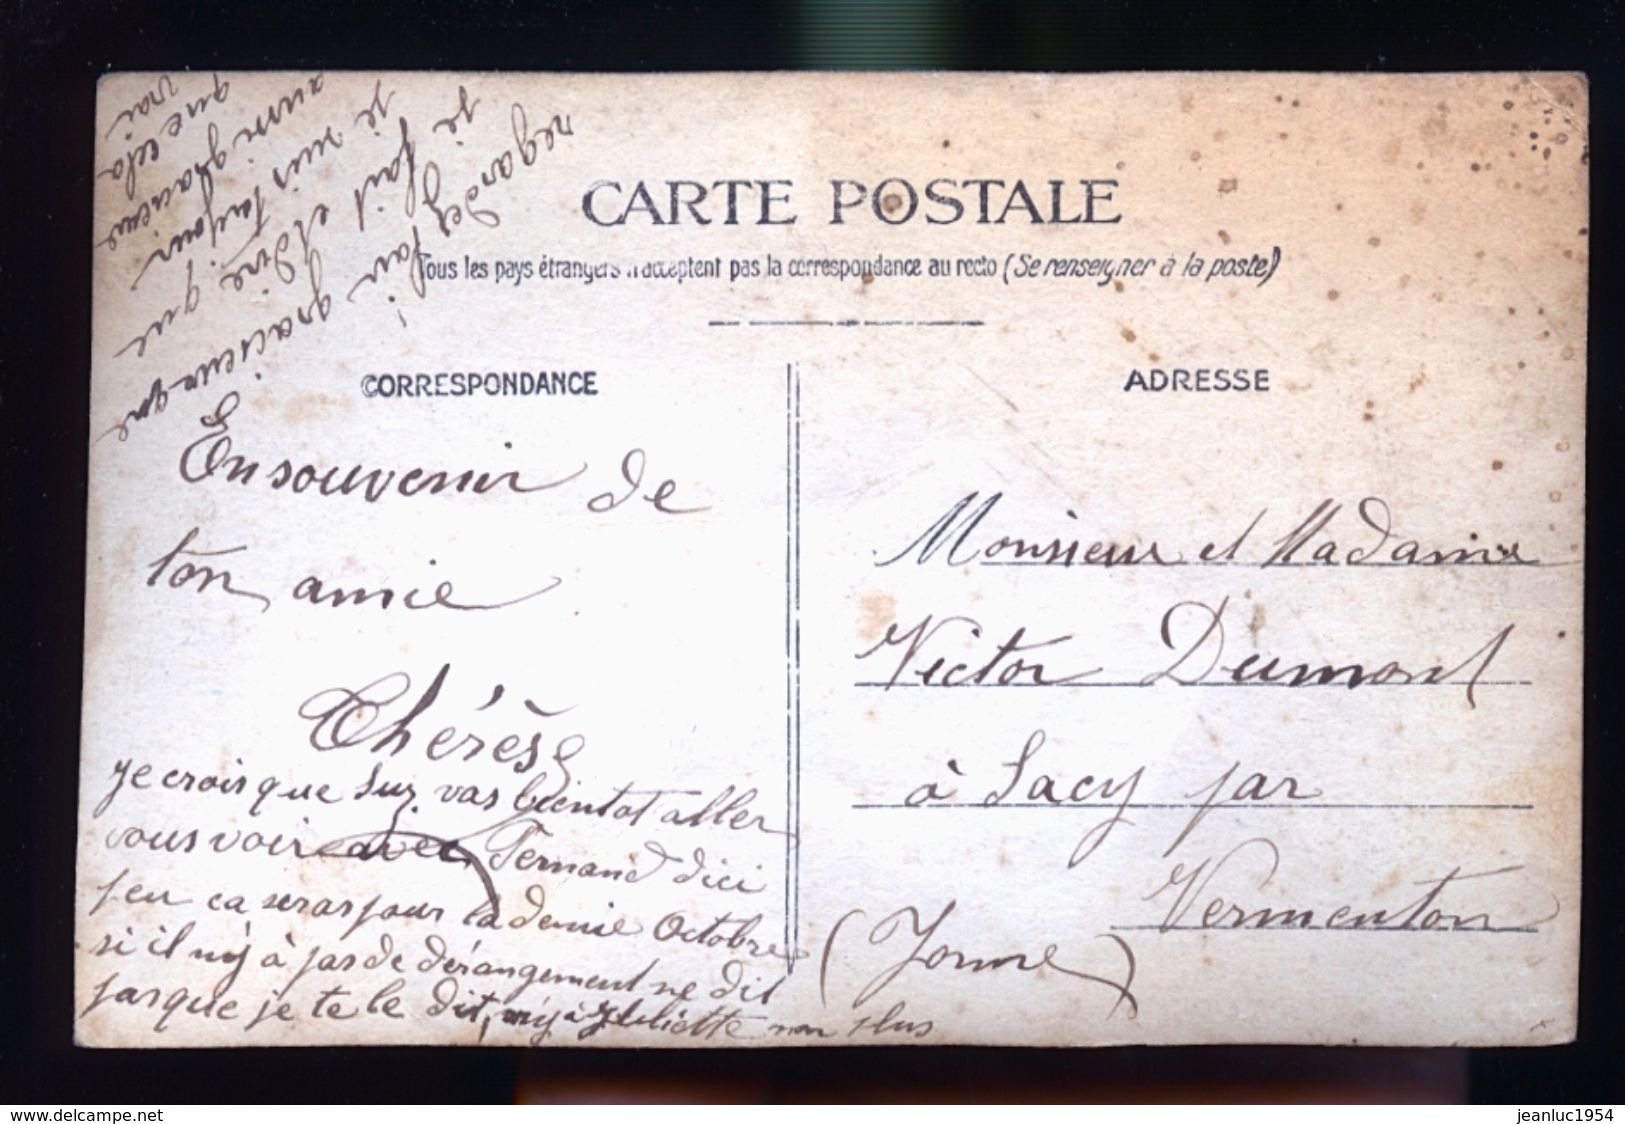 regardez l'air gracieux que
je fait et dire que
je suis toujour
aussi gracieuse
que cela
vrai
CARTE POSTALE
Tous les pays étrangers n'acceptent pas la correspondance au recto (Se renseigner à la poste)
CORRESPONDANCE
En souvenir de
ton amie
Thérèse
je crois que Suz. vas bientot aller
vous voir avec Fernand dici
peu ca seras pour la demie Octobre
si il n'y à pas de dérangement ne dit
pas que je te le dit, n'y à Juliette non plus
ADRESSE
Monsieur et Madame
Victor Dumont
à Sacy par
Vermenton
(Yonne)
www.delcampe.net
jeanluc1954